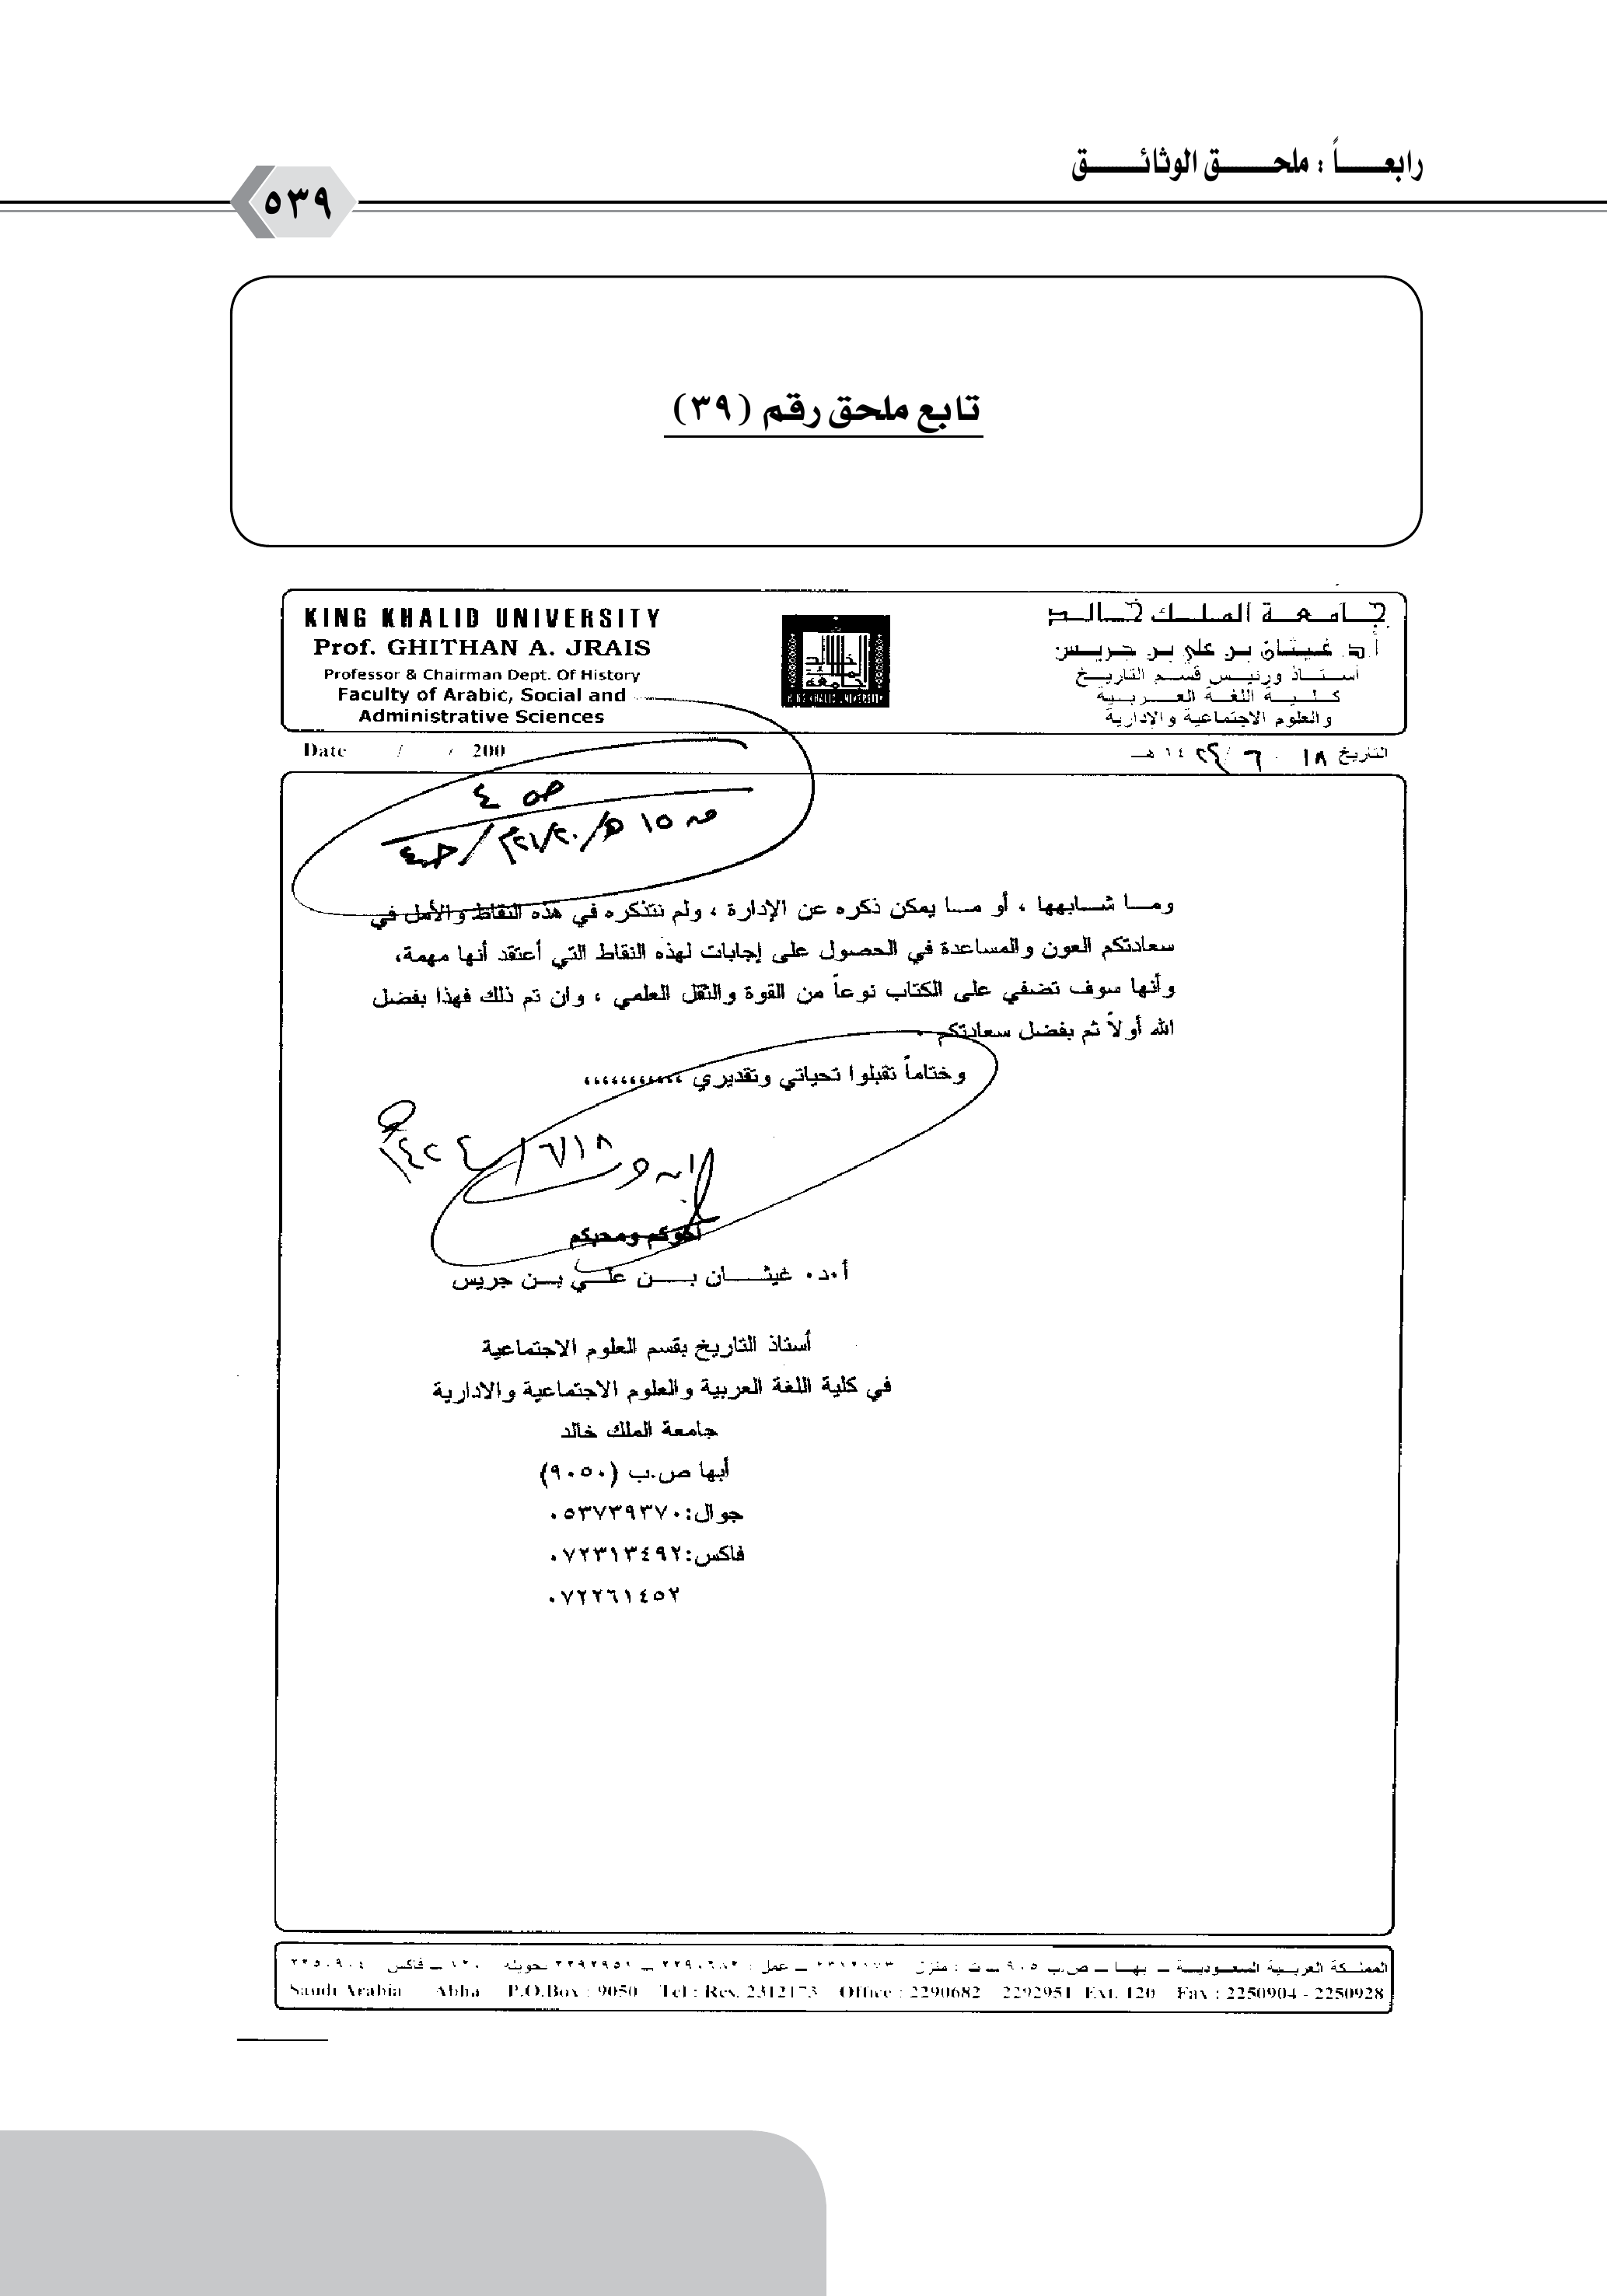 رابعاً : ملحق الوثائق
٥٣٩
تابع ملحق رقم (٣٩)
KING KHALID UNIVERSITY
Prof. GHITHAN A. JRAIS
Professor & Chairman Dept. Of History
Faculty of Arabic, Social and
Administrative Sciences
جامعة الملك خالد
أ.د. غيثان بن علي بن جريس
أستاذ ورئيس قسم التاريخ
كلية اللغة العربية
والعلوم الاجتماعية والإدارية
KING KHALID UNIVERSITY
Date / / 200
التاريخ ١٨ / ٦ / ١٤٢٤ هـ
ص ٤
وما شابهها ، أو ما يمكن ذكره عن الإدارة ، ولم نتذكره في هذه النقاط والأمل في
سعادتكم العون والمساعدة في الحصول على إجابات لهذه النقاط التي أعتقد أنها مهمة،
وأنها سوف تضفي على الكتاب نوعاً من القوة والثقل العلمي ، وان تم ذلك فهذا بفضل
الله أولاً ثم بفضل سعادتكم .
وختاماً تقبلوا تحياتي وتقديري ،،،،،،،،،،،
١٨/٦/١٤٢٤هـ
أخوكم ومحبكم
أ.د. غيثان بن علي بن جريس
أستاذ التاريخ بقسم العلوم الاجتماعية
في كلية اللغة العربية والعلوم الاجتماعية والادارية
جامعة الملك خالد
أبها ص.ب (٩٠٥٠)
جوال:٠٥٣٧٣٩٣٧٠
فاكس:٠٧٢٣١٣٤٩٢
٠٧٢٢٦١٤٥٢
المملكة العربية السعودية – أبها – ص.ب ٩٠٥٠ – ت : منزل ٢٣١٢١٧٣ – عمل : ٢٢٩٠٦٨٢ – ٢٢٩٢٩٥١ تحويلة ١٢٠ – فاكس ٢٢٥٠٩٠٤
Saudi Arabia Abha P.O.Box : 9050 Tel : Res. 2312173 Office : 2290682 2292951 Ext. 120 Fax : 2250904 - 2250928